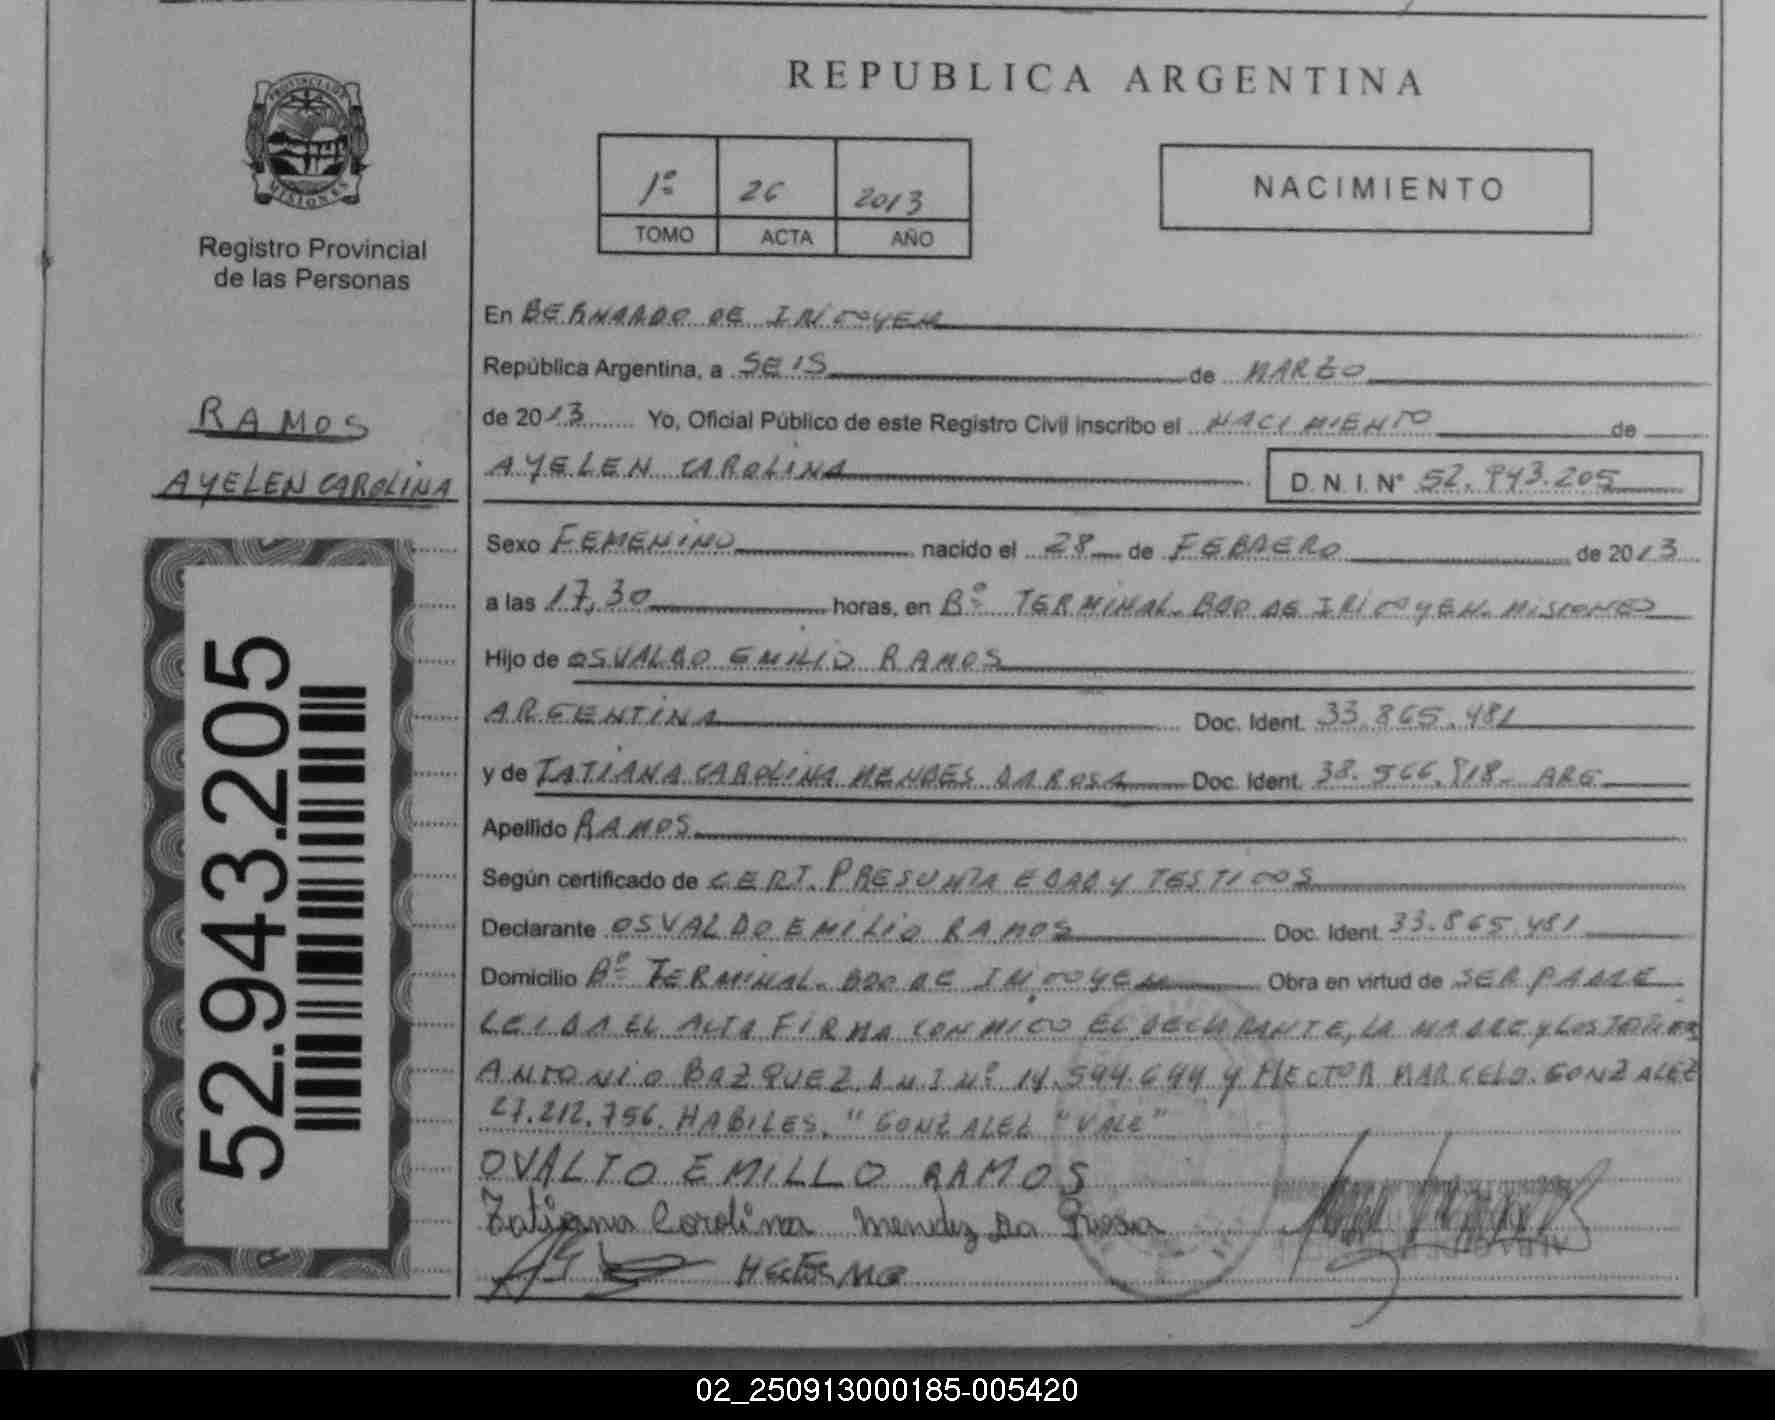 REPUBLICA ARGENTINA
PROVINCIA DE MISIONES
Registro Provincial
de las Personas
1º 26 2013
TOMO ACTA AÑO
NACIMIENTO
RAMOS
AYELEN CAROLINA
52.943.205
En BERNARDO DE IRIGOYEN
República Argentina, a SEIS de MARZO
de 2013 Yo, Oficial Público de este Registro Civil inscribo el NACIMIENTO de
AYELEN CAROLINA D. N. I. Nº 52.943.205
Sexo FEMENINO nacido el 28 de FEBRERO de 2013
a las 17,30 horas, en Bº TERMINAL- BDO DE IRIGOYEN- MISIONES
Hijo de OSVALDO EMILIO RAMOS
ARGENTINA Doc. Ident. 33.865.481
y de TATIANA CAROLINA MENDES DA ROSA Doc. Ident. 38.566.818- ARG
Apellido RAMOS
Según certificado de CERT. PRESUNTA EDAD y TESTIGOS
Declarante OSVALDO EMILIO RAMOS Doc. Ident. 33.865.481
Domicilio Bº TERMINAL- BDO DE IRIGOYEN Obra en virtud de SER PADRE
LEIDA EL ACTA FIRMA CONMIGO EL DECLARANTE, LA MADRE y LOS
ANTONIO BAZQUEZ D.N.I Nº 14.594.644 y HECTOR MARCELO GONZALEZ
27.212.756. HABILES. "GONZALEZ "VALE"
OVALTO EMILLO RAMOS
Tatiana Carolina Mendez Da Rossa
02_250913000185-005420